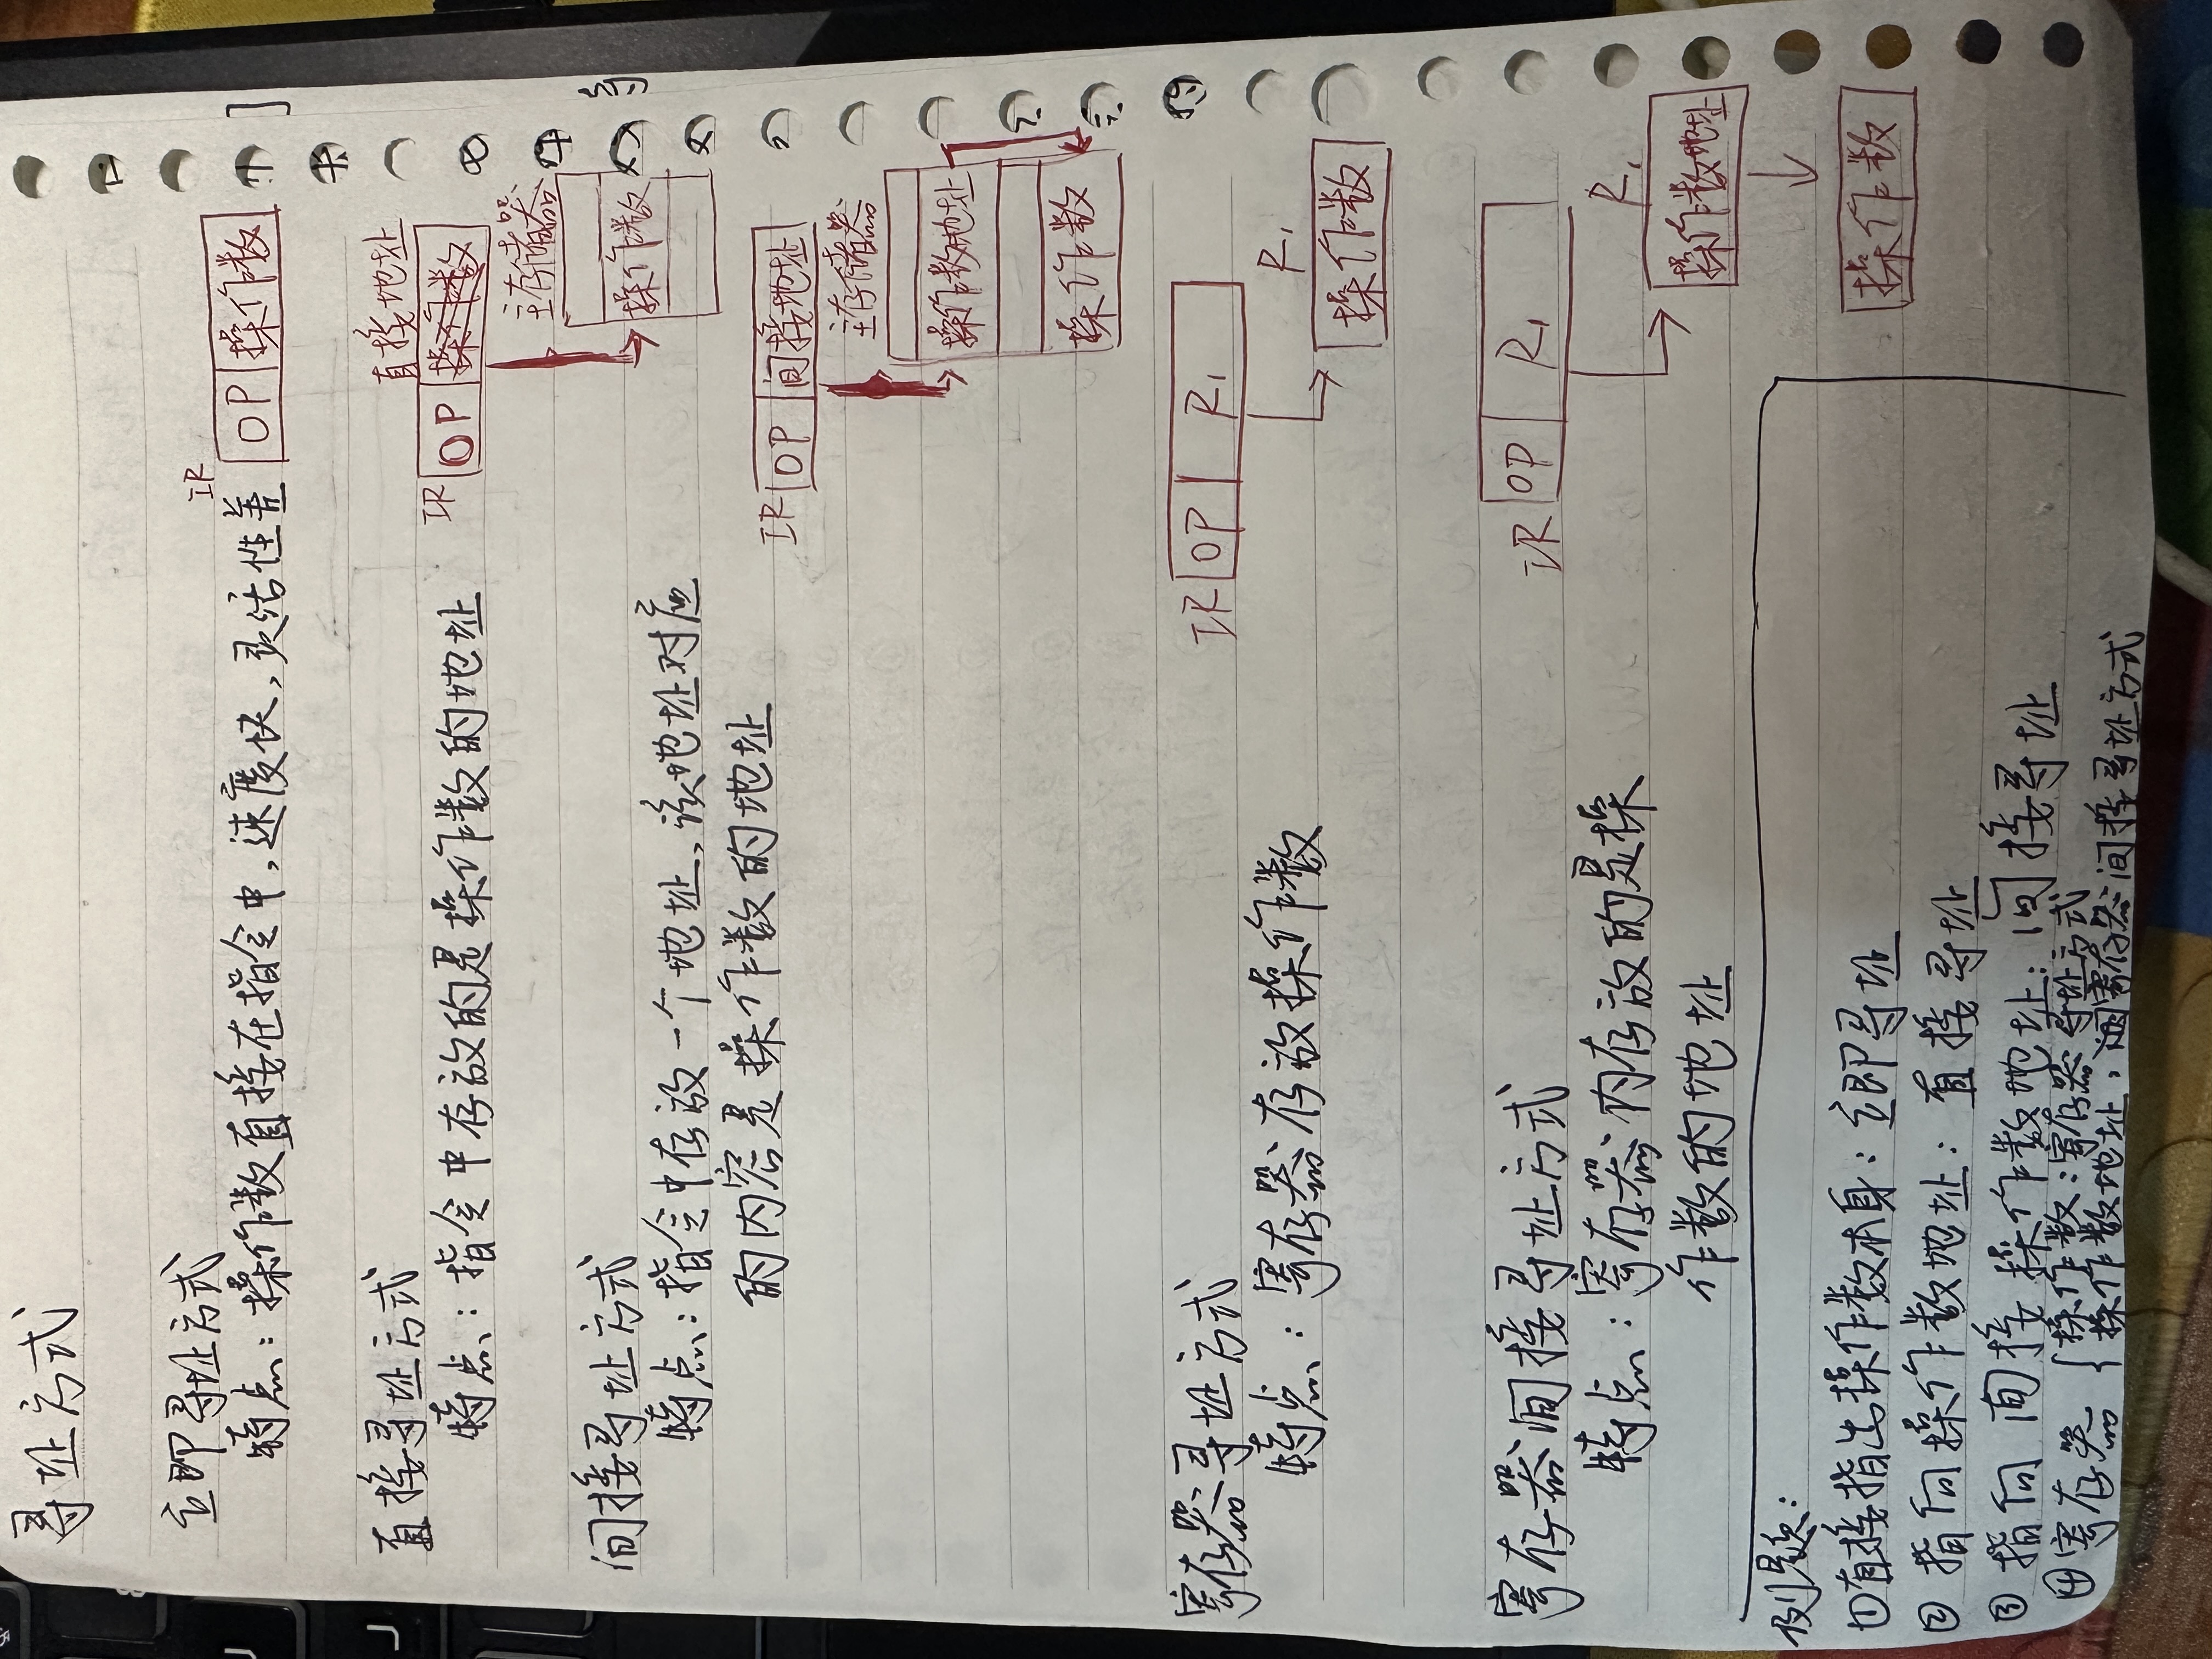 寻址方式
立即寻址方式
IR
特点：操作数直接在指令中，速度快，灵活性差
OP 操作数
直接寻址方式
直接地址
特点：指令中存放的是操作数的地址
IR OP 操作数
主存储器
操作数
间接寻址方式
特点：指令中存放一个地址，该地址对应
的内容是操作数的地址
IR OP 间接地址
主存储器
操作数地址
操作数
寄存器寻址方式
特点：寄存器存放操作数
IR OP R₁
R₁
操作数
寄存器间接寻址方式
特点：寄存器内存放的是操
作数的地址
IR OP R₁
R₁
操作数地址
操作数
例题：
①直接指出操作数本身：立即寻址
② 指向操作数地址：直接寻址
③ 指向间接操作数地址：间接寻址
④寄存器
操作数：寄存器寻址方式
操作数地址：寄存器间接寻址方式